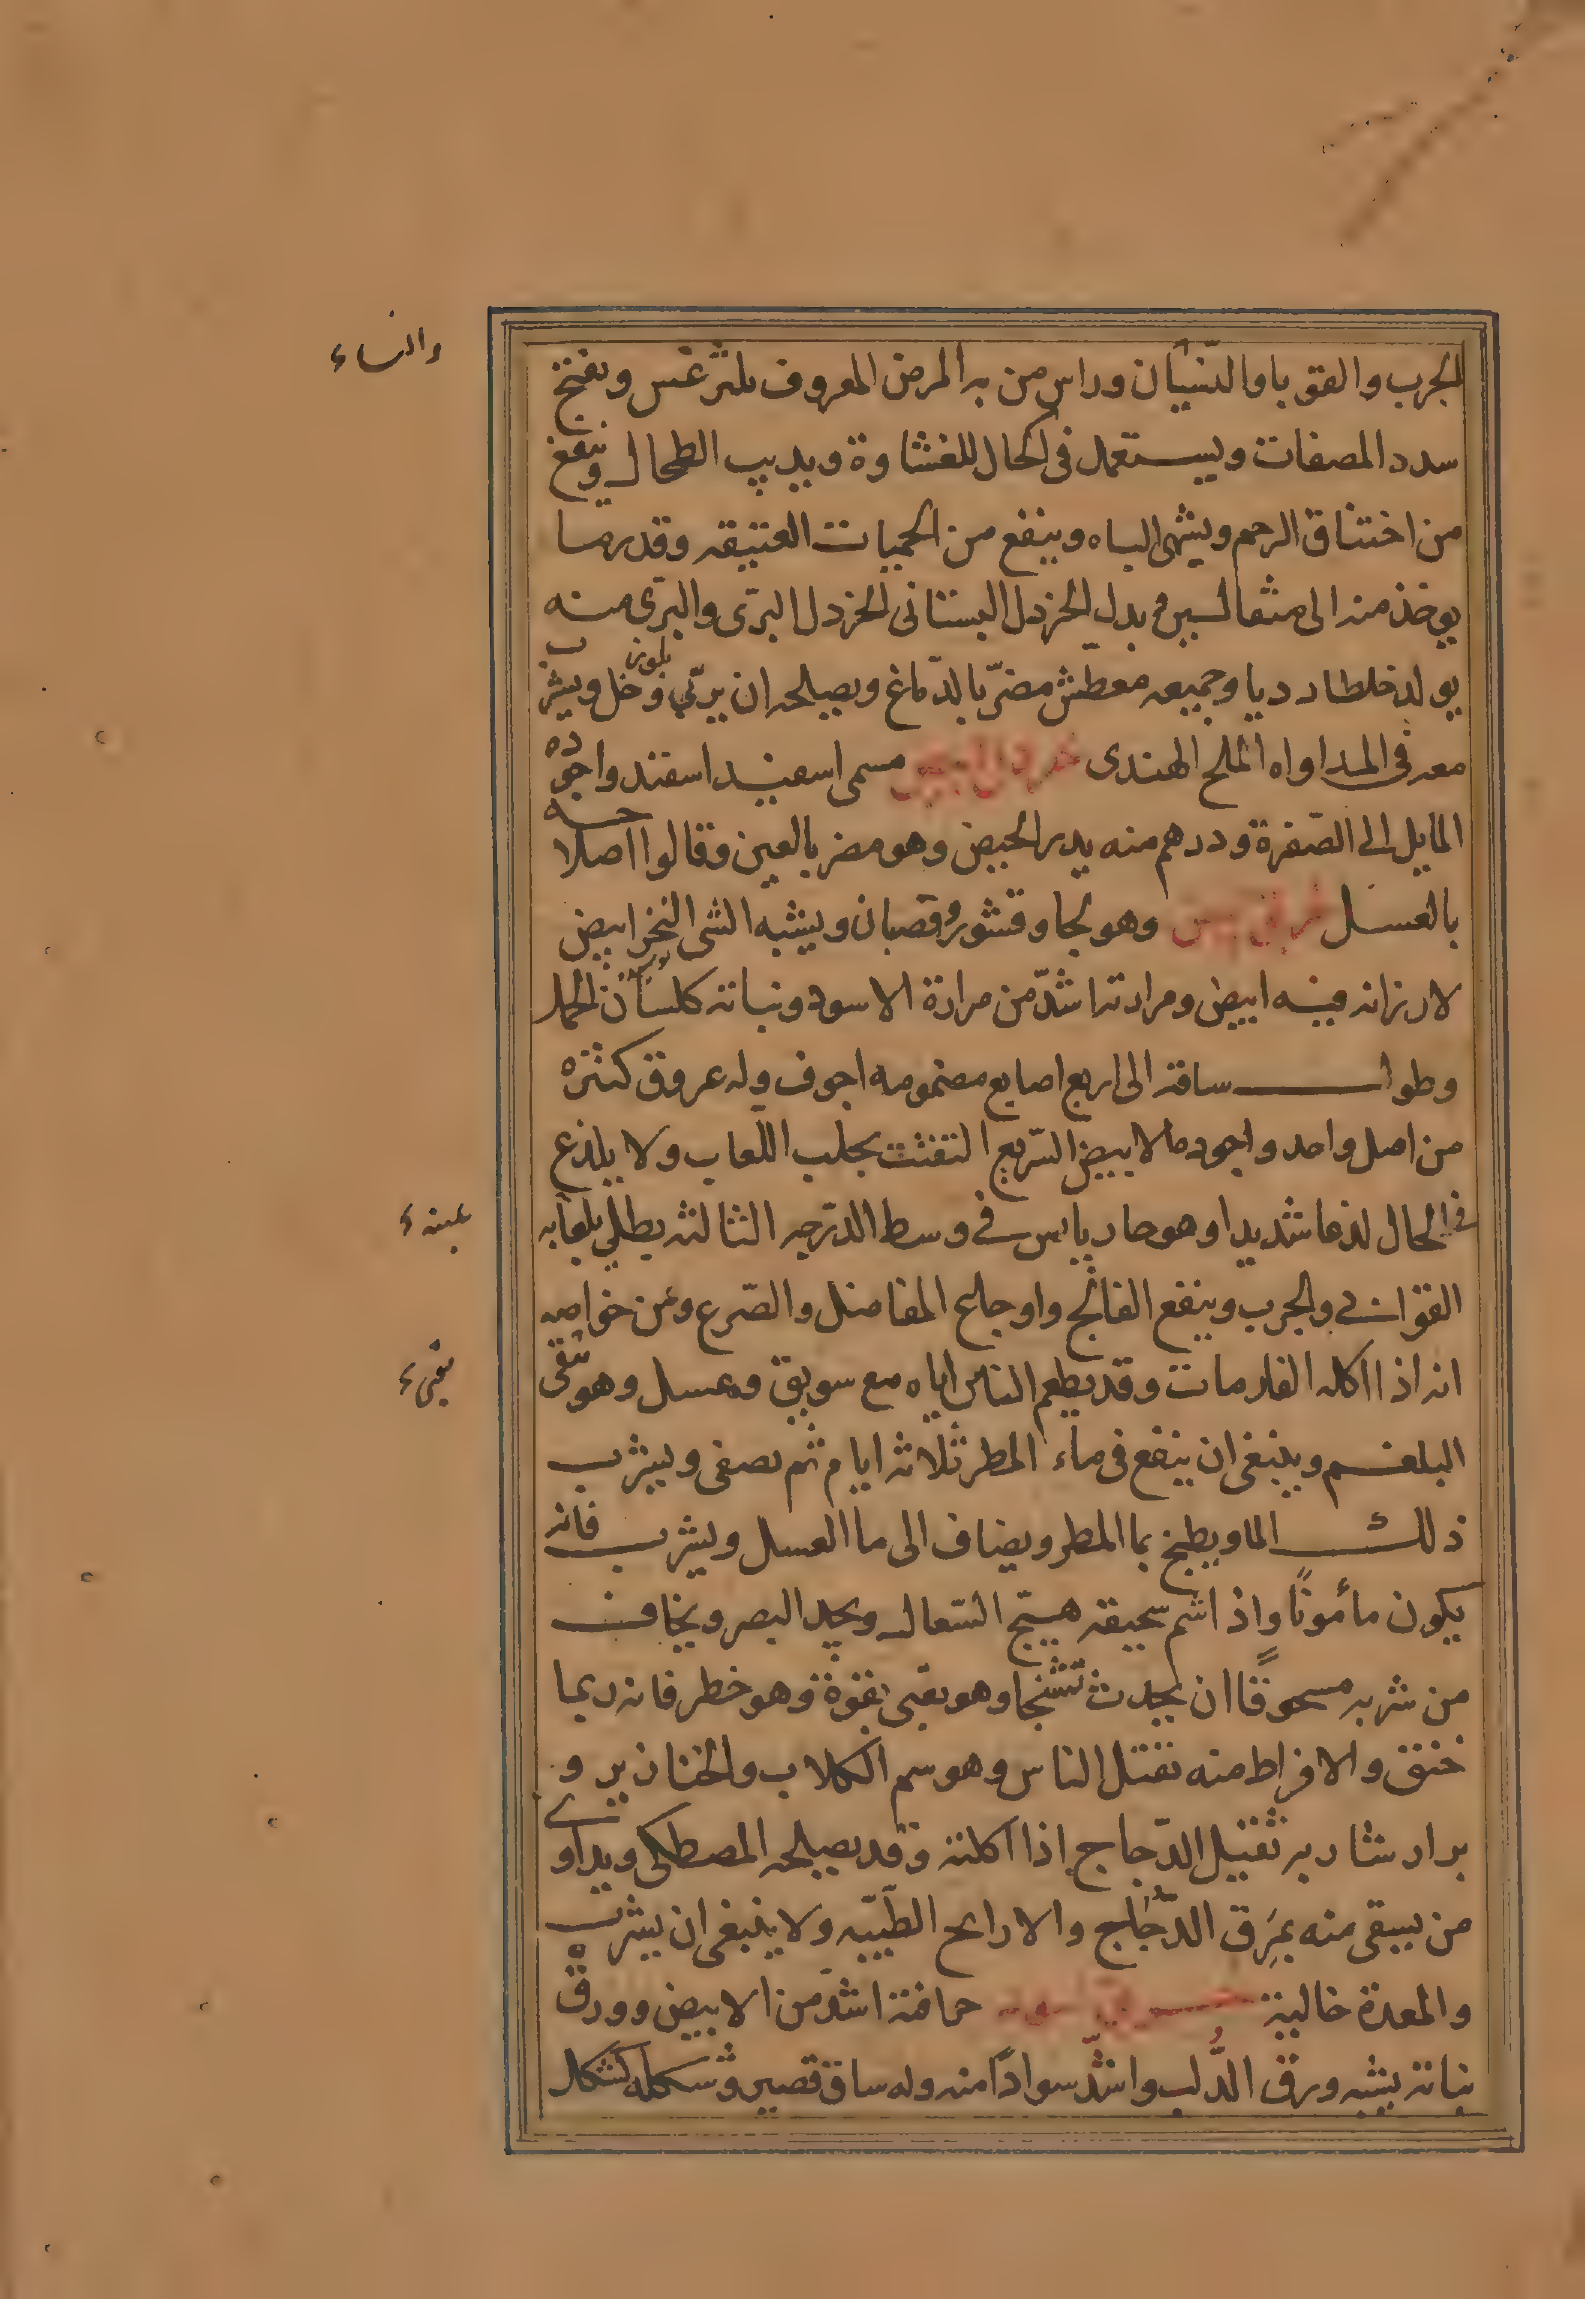 الجرب والقوبا والنسيان وراس من به المرض المعروف بلثرغس ويفتح
سدد المصفات ويستعمل في اكحال للغشاوة ويذيب الطحال وينفع
من اختناق الرحم ويشهى الباه وينفع من الحميات العتيقه وقدر ما
يوخذ منه الى مثقالين وبدل الخردل البستانى الخردل البرّى والبرّى منه
يولد خلطا رديا وجميعه معطّش مضرّ بالدّماغ ويصلحه ان يربّي بلوز وخل ويشرب
معه في المداواه الملح الهندى خردل ابيض مسمى اسفيند اسفند واجوده
المايل الى الصّفرة ودرهم منه يدر الحيض وهو مضر بالعين وقالوا اصلاحه
بالعسل خربق ابيض وهو لحا وقشور وقصبان ويشبه الشى النخر ابيض
لا رزانه فيه ابيض ومرارته اشدّ من مرارة الاسود ونباته كلسان الحمل
وطول ساقه الى اربع اصابع مضمومه اجوف وله عروق كثيره
من اصل واحد واجوده الابيض السّريع التفتت يجلب اللّعاب ولا يلذع
في الحال لذعا شديدا وهو حار يابس في وسط الدّرجه الثالثه يطلي بلعابه
القوابي والجرب وينفع الفالج واوجاع المفاصل والصّرع ومن خواصه
انه اذا اكله الفار مات وقد يطعم الناس اياه مع سويق وعسل وهو ينقى
البلغم وينبغى ان ينقع في ماء المطر ثلاثه ايام ثم يصفى ويشرب
ذلك الما ويطبخ بما المطر ويضاف الى ما العسل ويشرب فانه
يكون مأمونًا واذا شم سحيقه هيّج السّعال ويحد البصر ويخاف
من شربه مسحوقًا ان يحدث تشنجا وهو يقيى بقوة وهو خطر فانه ربما
خنق والافراط منه تقتل الناس وهو سم الكلاب والخنازير و
براز شاربه تقتل الدّجاج اذا اكلته وقد يصلحه المصطكى ويداوي
من يسقى منه بمرق الدّجاج والارايح الطّيّبه ولا ينبغى ان يشرب
والمعدة خالية خربق اسود حافته اشدّ من الابيض وورقه
نباته يشبه ورق الدّلب واشدّ سوادًا منه وله ساق قصير وشكله كشكل
والنساء